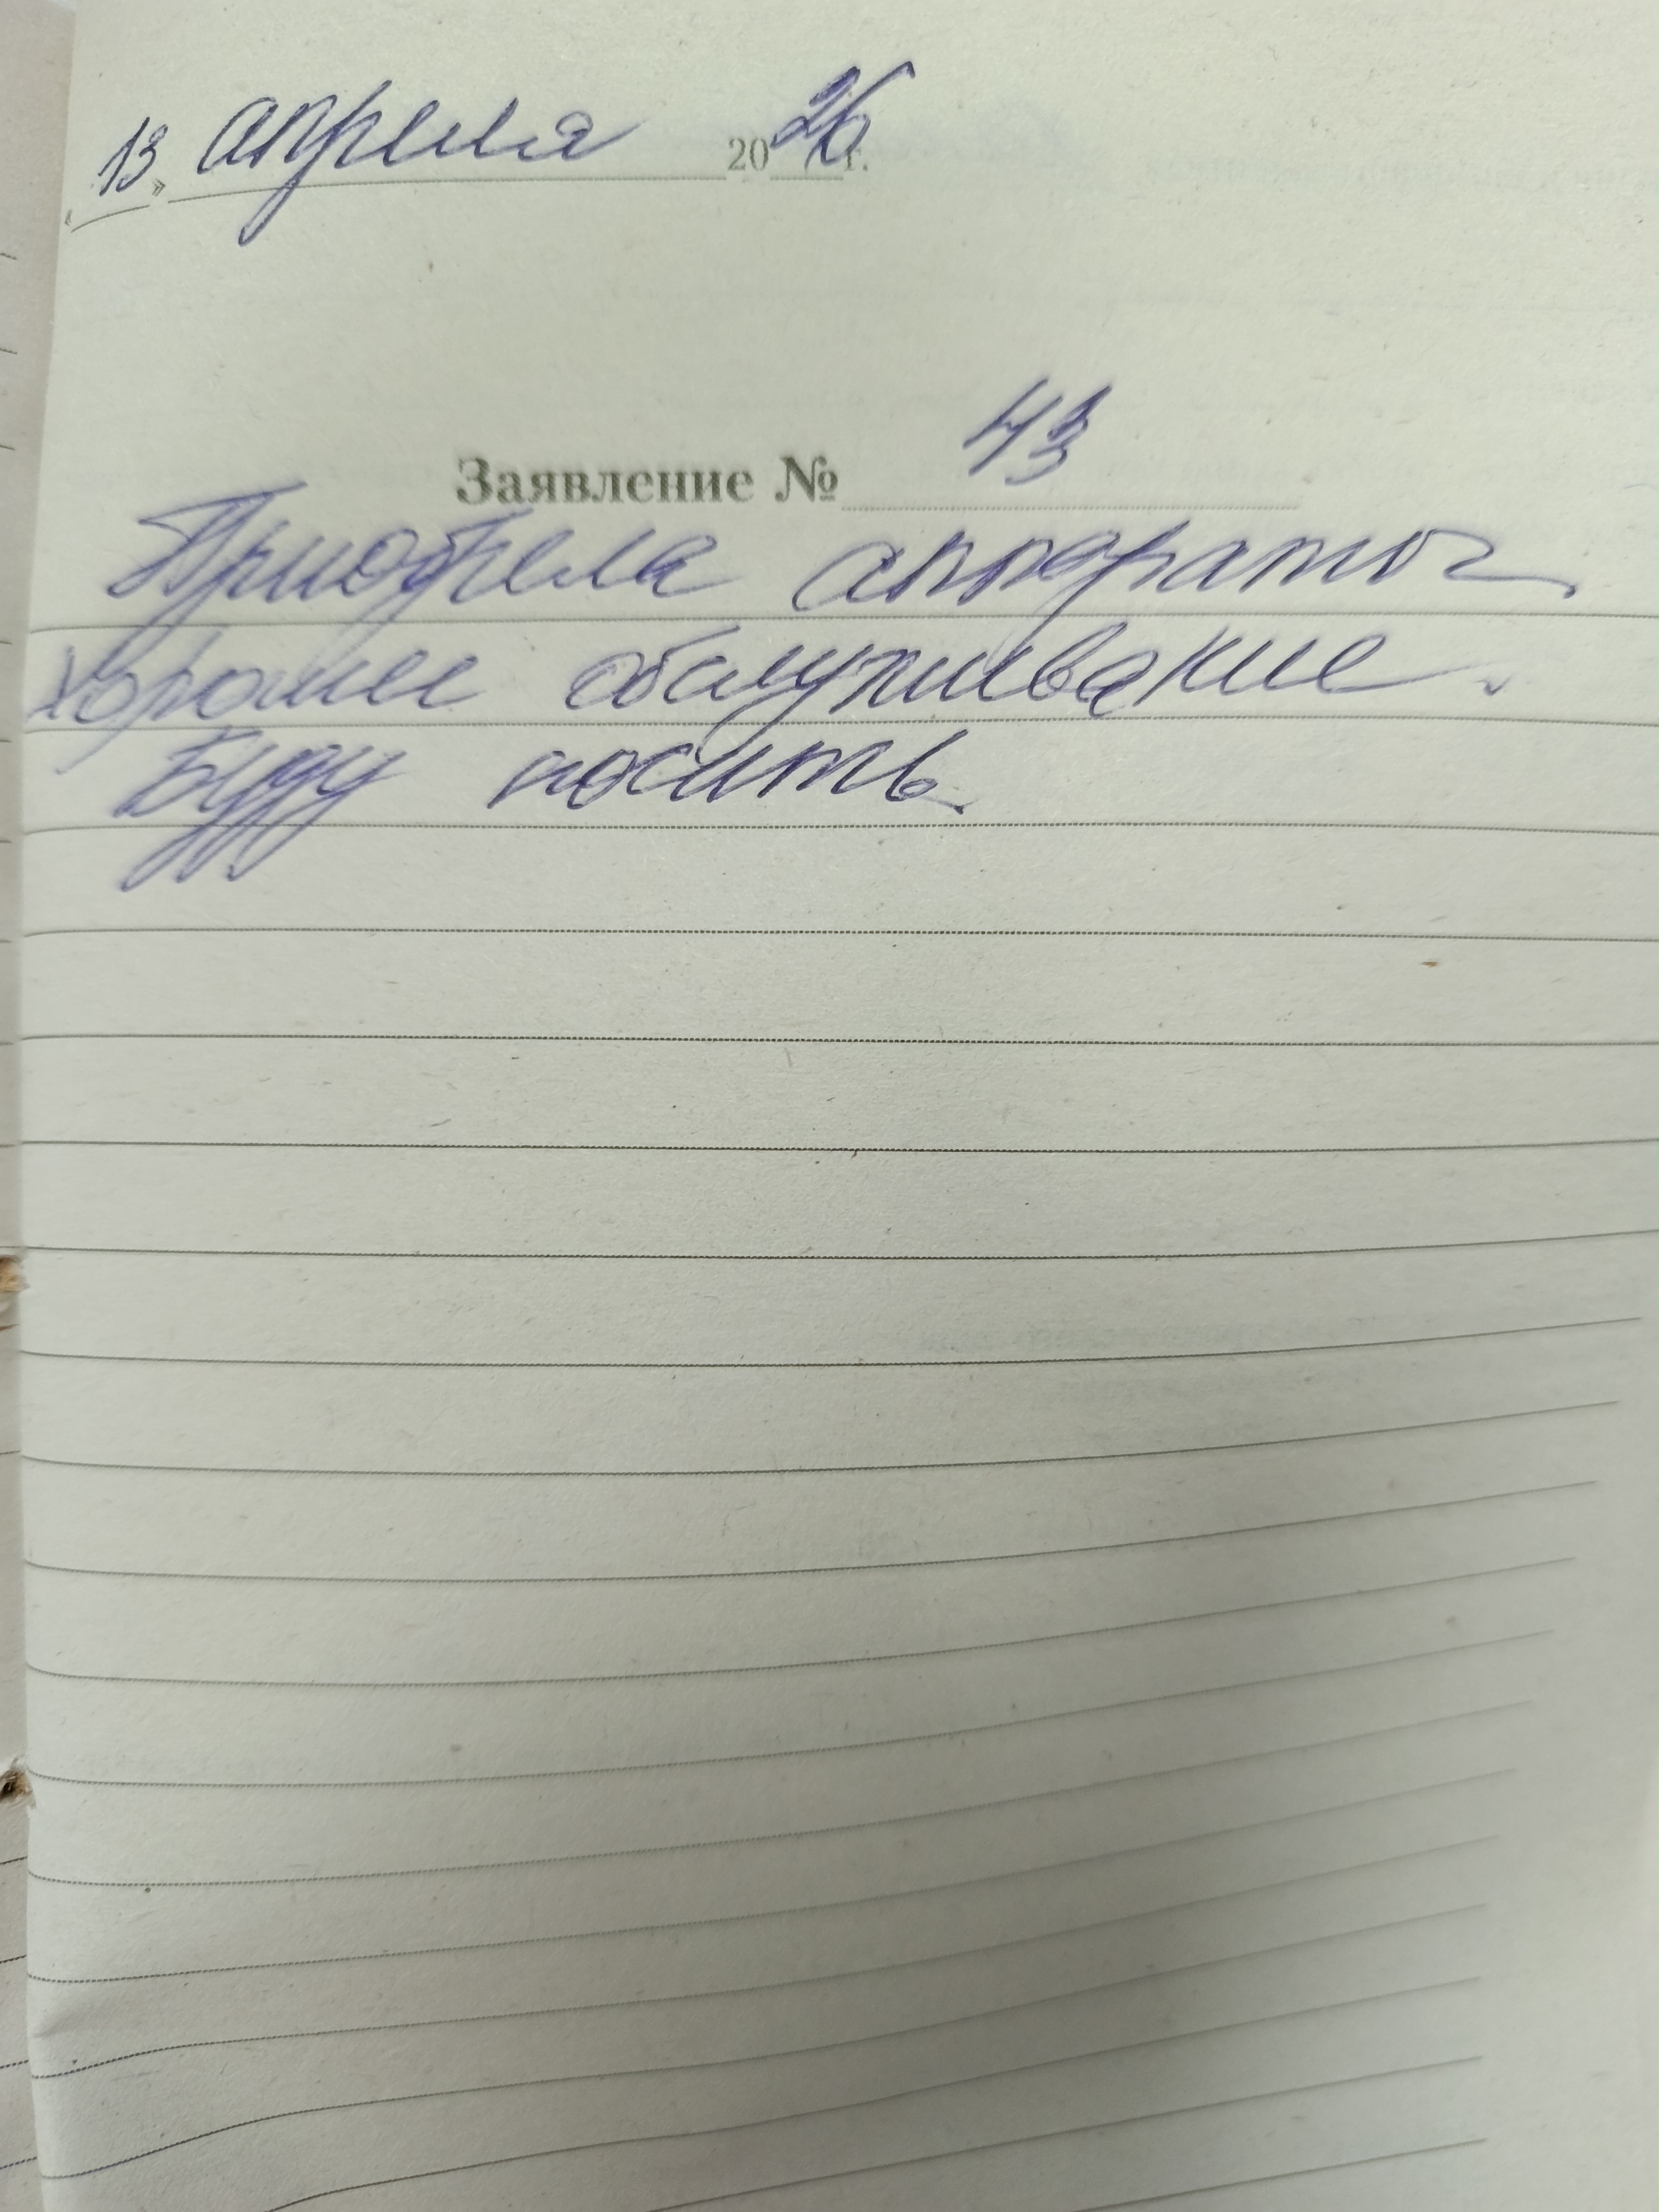 «13» апреля 2026 г.
Заявление № 43
Приобрела аппараты.
Хорошее обслуживание.
Буду носить.